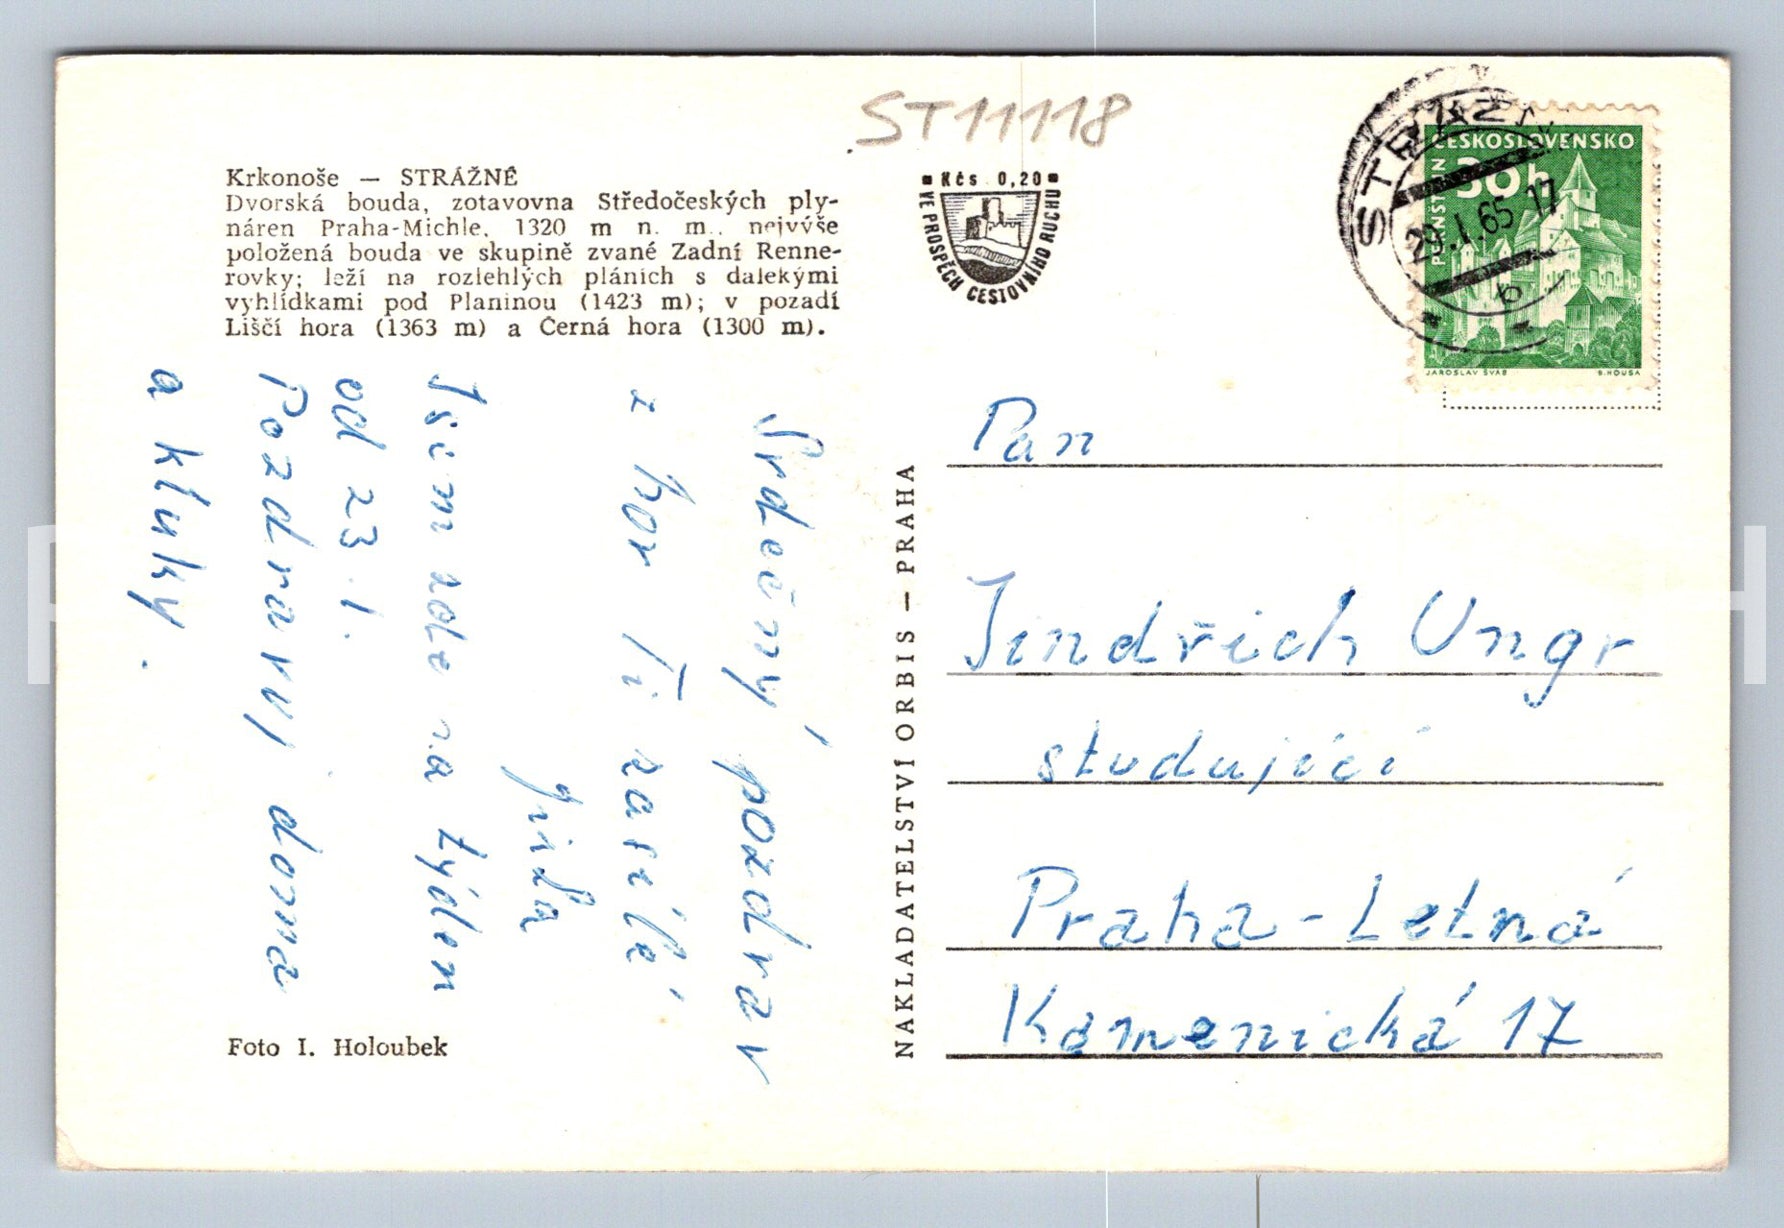 ST11118
Krkonoše — STRÁŽNÉ
Dvorská bouda, zotavovna Středočeských ply-
náren Praha-Michle, 1320 m n. m., nejvýše
položená bouda ve skupině zvané Zadní Renne-
rovky; leží na rozlehlých pláních s dalekými
vyhlídkami pod Planinou (1423 m); v pozadí
Liščí hora (1363 m) a Černá hora (1300 m).
Kčs 0,20
VE PROSPĚCH CESTOVNÍHO RUCHU
STRÁŽNÉ
29.I.65-17
b
ČESKOSLOVENSKO
30h
JAROSLAV ŠVÁB
Srdečný pozdrav
z hor Ti zasílá
Jirka
Jsem zde na týden
od 23.1.
Pozdravuj doma
a kluky.
Foto I. Holoubek
NAKLADATELSTVÍ ORBIS — PRAHA
Pan
Jindřich Ungr
studující
Praha-Letná
Kamenická 17